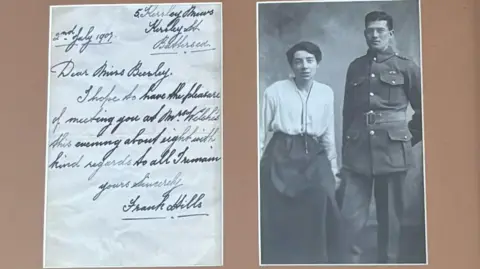 5, Kersley Mews
Kersley St.
2nd July 1907.
Battersea
Dear Miss Burley.
I hope to have the pleasure
of meeting you at Mrs
this evening about eight with
kind regards to all I remain
yours Sincerely
Frank Hills